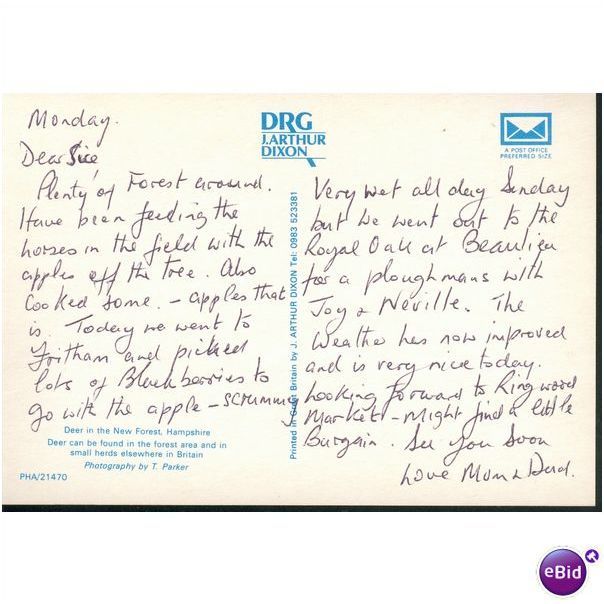 Monday.
Dear Sue
Plenty of Forest around.
Have been feeding the
horses in the field with the
apples off the tree. Also
Cooked some. - apples that
is. Today we went to
Fritham and picked
lots of Blackberries to
go with the apple - SCRUMMY
Deer in the New Forest, Hampshire
Deer can be found in the forest area and in
small herds elsewhere in Britain
Photography by T. Parker
PHA/21470
DRG
J.ARTHUR
DIXON
Printed in Great Britain by J. ARTHUR DIXON Tel: 0983 523381
A POST OFFICE
PREFERRED SIZE
Very wet all day Sunday
but we went out to the
Royal Oak at Beaulieu
for a ploughmans with
Joy & Neville. The
Weather has now improved
and is very nice today.
Looking forward to Ringwood
Market - Might find a little
Bargain. See you Soon
Love Mum & Dad.
eBid